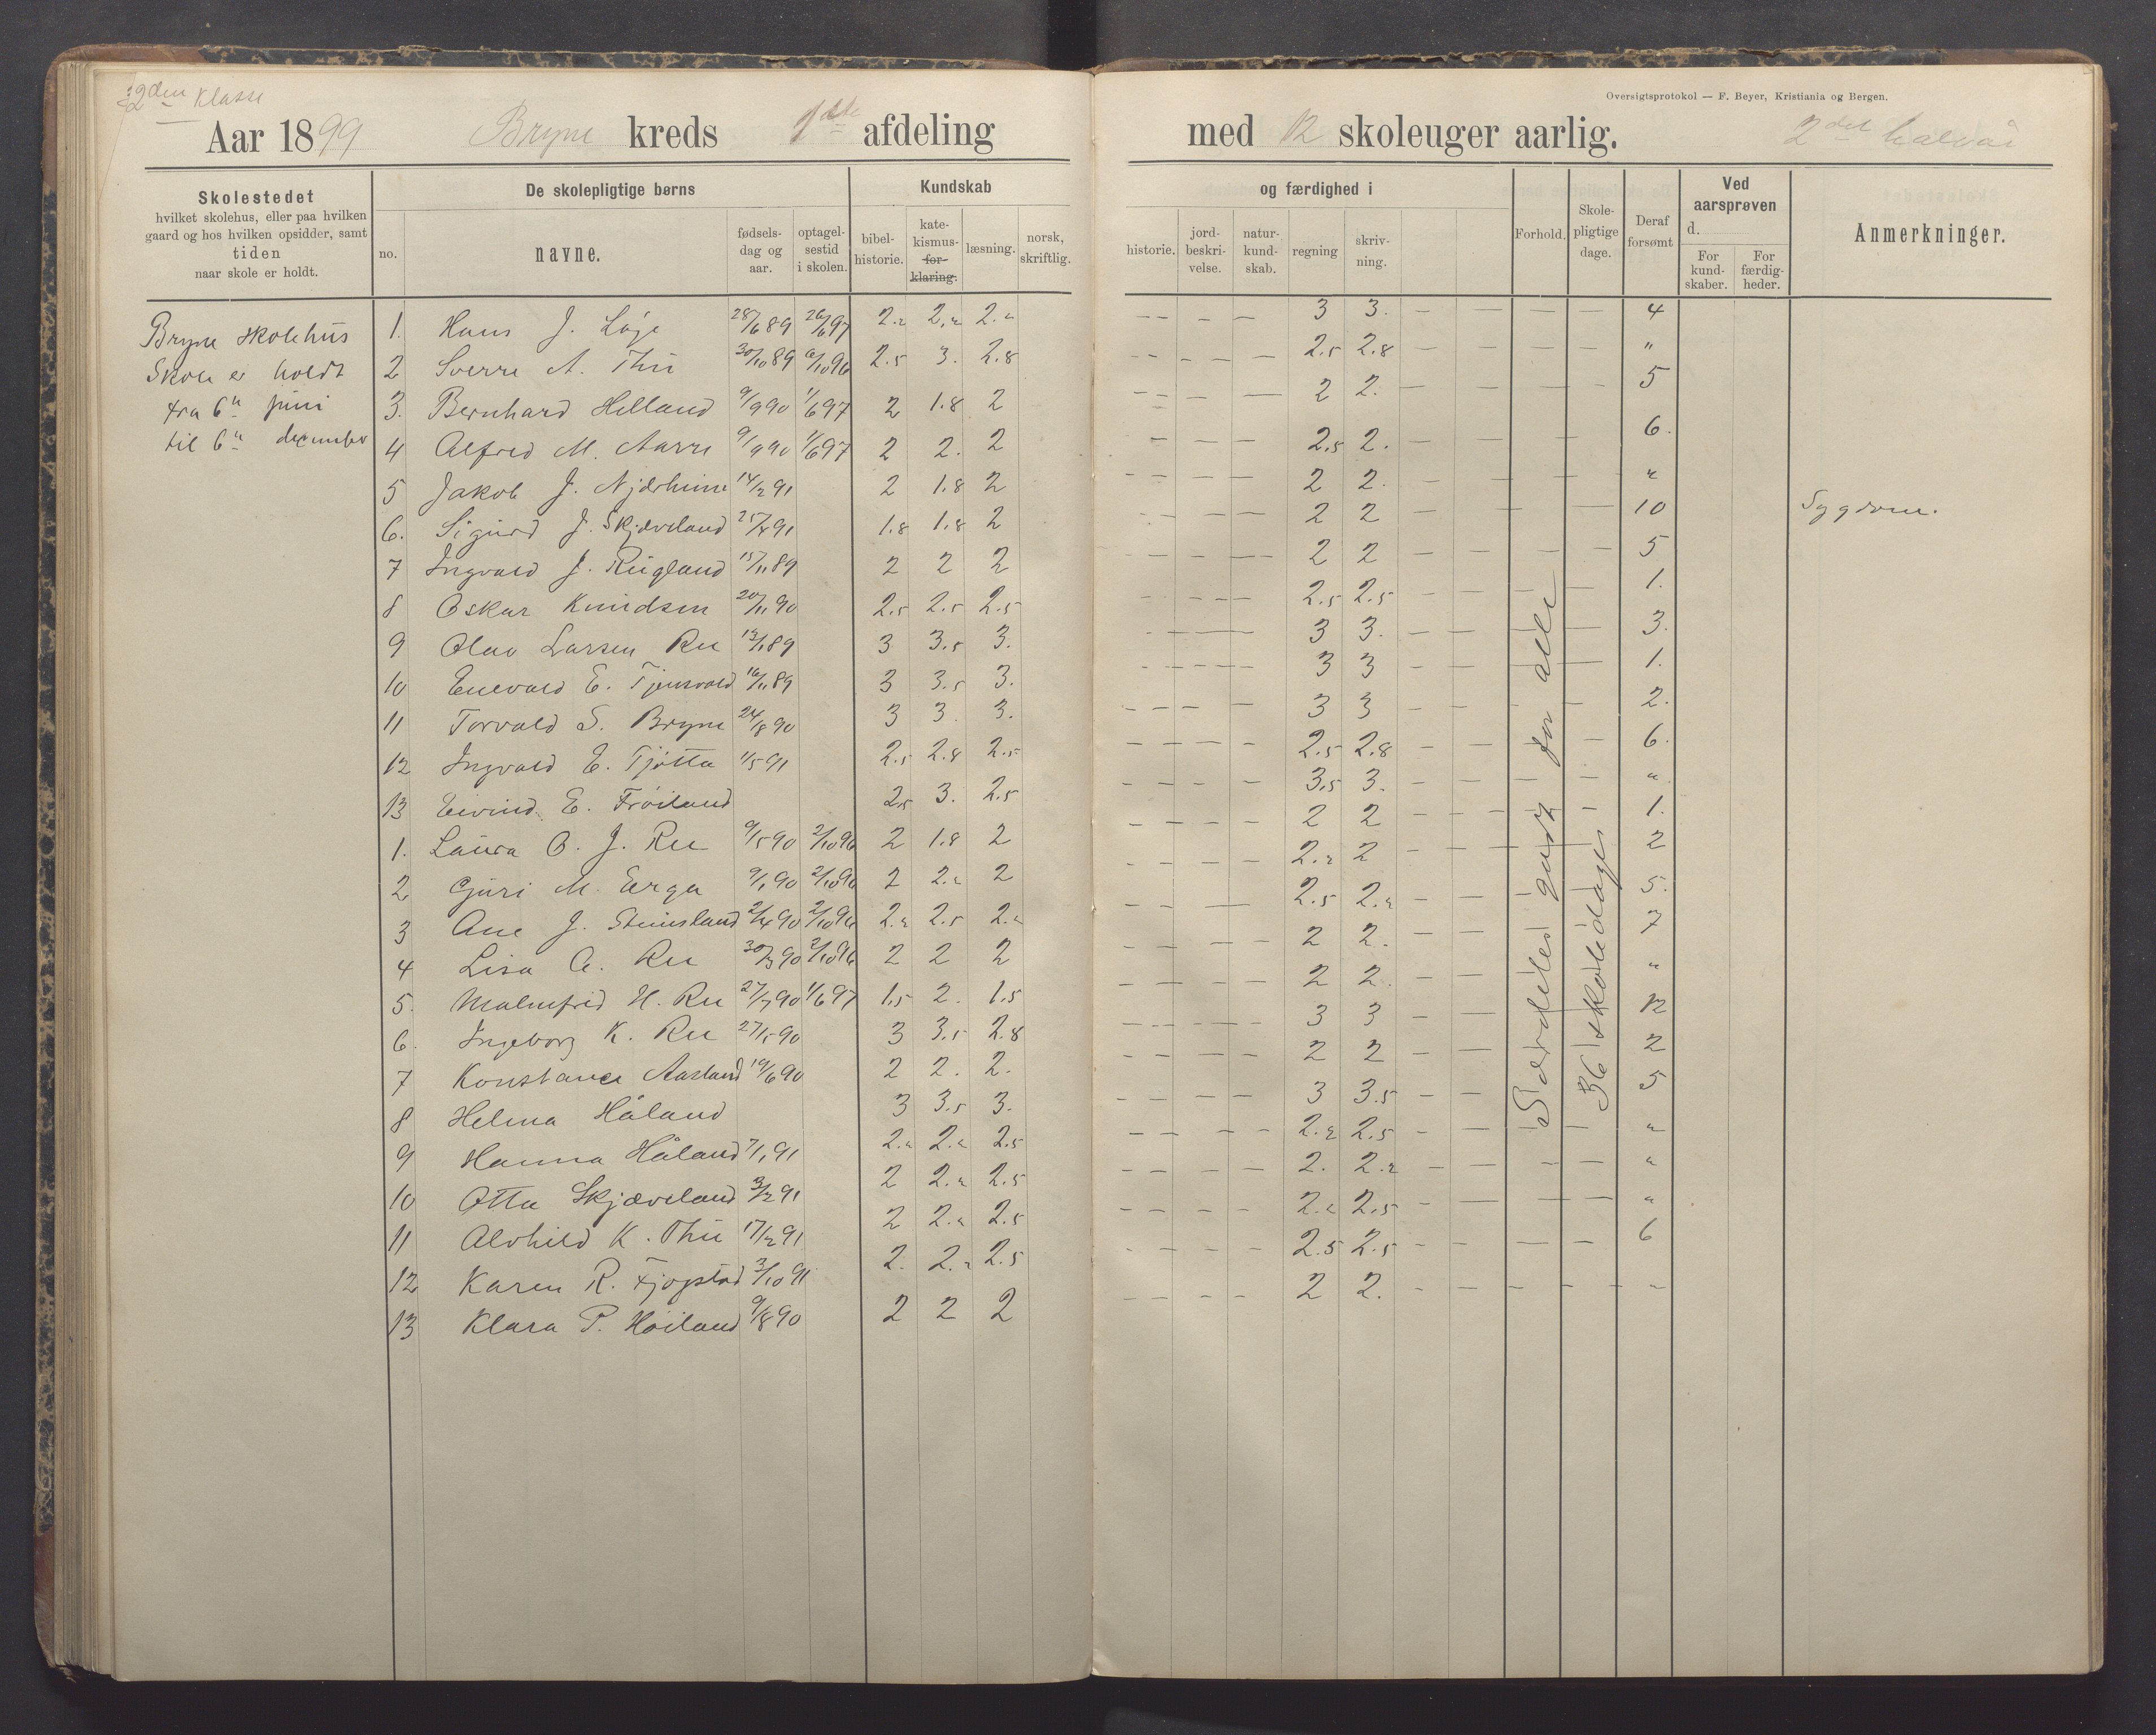 2den Klasse
Oversigtsprotokol — F. Beyer, Kristiania og Bergen.
Aar 1899 Bryne kreds 1ste afdeling med 12 skoleuger aarlig. 2det halvår
Skolestedet
hvilket skolehus, eller paa hvilken
gaard og hos hvilken opsidder, samt
tiden
naar skole er holdt.
De skolepligtige børns
no.
navne.
fødsels-
dag og
aar.
optagel-
sestid
i skolen.
Kundskab
bibel-
historie.
kate-
kismus-
for-
klaring.
læsning.
norsk,
skriftlig.
og færdighed i
historie.
jord-
beskri-
velse.
natur-
kund-
skab.
regning
skriv-
ning.
Forhold.
Skole-
pligtige
dage.
Deraf
forsømt
Ved
aarsprøven
d.
For
kund-
skaber.
For
færdig-
heder.
Anmerkninger.
Bryne skolehus
Skole er holdt
fra 6te juni
til 6te december
1. Hans J. Lôge 28/6 89 26/6 97 2.2 2.2 2.2 — — — 3 3. — — — — 4
2 Sverre A. Thu 30/10 89 6/10 96 2.5 3. 2.8 — — — 2.5 2.8 — — — — "
3. Bernhard Helland 9/9 90 1/6 97 2 1.8 2 — — — 2 2. — — — — 5
4 Alfred M. Aarre 9/9 90 1/6 97 2 2. 2 — — — 2.5 2. — — — 6.
5 Jakob J. Njærheim 14/2 91 2 1.8 2 — — — 2 2. — — — — "
6. Sigurd J. Skjæveland 25/4 91 1.8 1.8 2 — — — 2 2 — — — — 10 Sygdom.
7 Ingvald J. Rugland 15/11 89 2 2 2 — — — 2 2 — — — — 5
8 Oskar Knudsen 20/11 90 2.5 2.5 2.5 — — — 2.5 2.5 — — — 1.
9 Olav Larsen Ree 13/1 89 3 3.5 3. — — — 3 3. — — — 3.
10 Enevald E. Tjensvold 16/11 89 3 3.5 3. — — — 3 3 — — — 1.
11 Torvald S. Bryne 24/8 90 3 3. 3. — — — 3 3 — — — 2.
12 Ingvald E. Tjøtta 1/5 91 2.5 2.8 2.5 — — — 2.5 2.8 — — — 6.
13 Eivind E. Frôiland 2.5 3. 2.5 — — — 3.5 3. — — — "
1. Laura O. J. Ree 9/5 90 2/10 96 2 1.8 2 — — — 2 2 — — — 1.
2 Guri M. Erga 9/1 90 2/10 96 2 2.2 2 — — — 2.2 2 — — 2
3 Ane J. Steinsland 2/4 90 2/10 96 2.2 2.5 2.2 — — — 2.5 2.2 — — 5.
4 Lisa A. Ree 30/3 90 2/10 96 2 2 2 — — — 2 2. — — 7
5. Malmfrid H. Ree 27/7 90 1/6 97 1.5 2. 1.5 — — — 2 2. — — "
6. Ingeborg K. Ree 27/5 90 3 3.5 2.8 — — — 3 3 — — 12
7 Konstance Aasland 19/6 90 2 2. 2. — — — 2 2 — — 2
8 Helma Håland 3 3.5 3. — — — 3 3.5 — — 5
9 Hanna Håland 7/1 91 2.2 2.2 2.5 — — — 2.2 2.5 — — — "
10 Otta Skjæveland 3/2 91 2 2.2 2.5 — — — 2. 2.2 — — — — "
11 Alvhild K. Thu 17/2 91 2 2.2 2.5 — — — 2.2 2.5 — — — — "
12 Karen R. Fjogstad 3/10 91 2. 2.2 2.5 — — — 2.5 2.5 — — — — 6
13 Klara P. Høiland 9/8 90 2 2 2 — — — 2 2. — — — — "
Særdeles godt for alle
36 skoledage